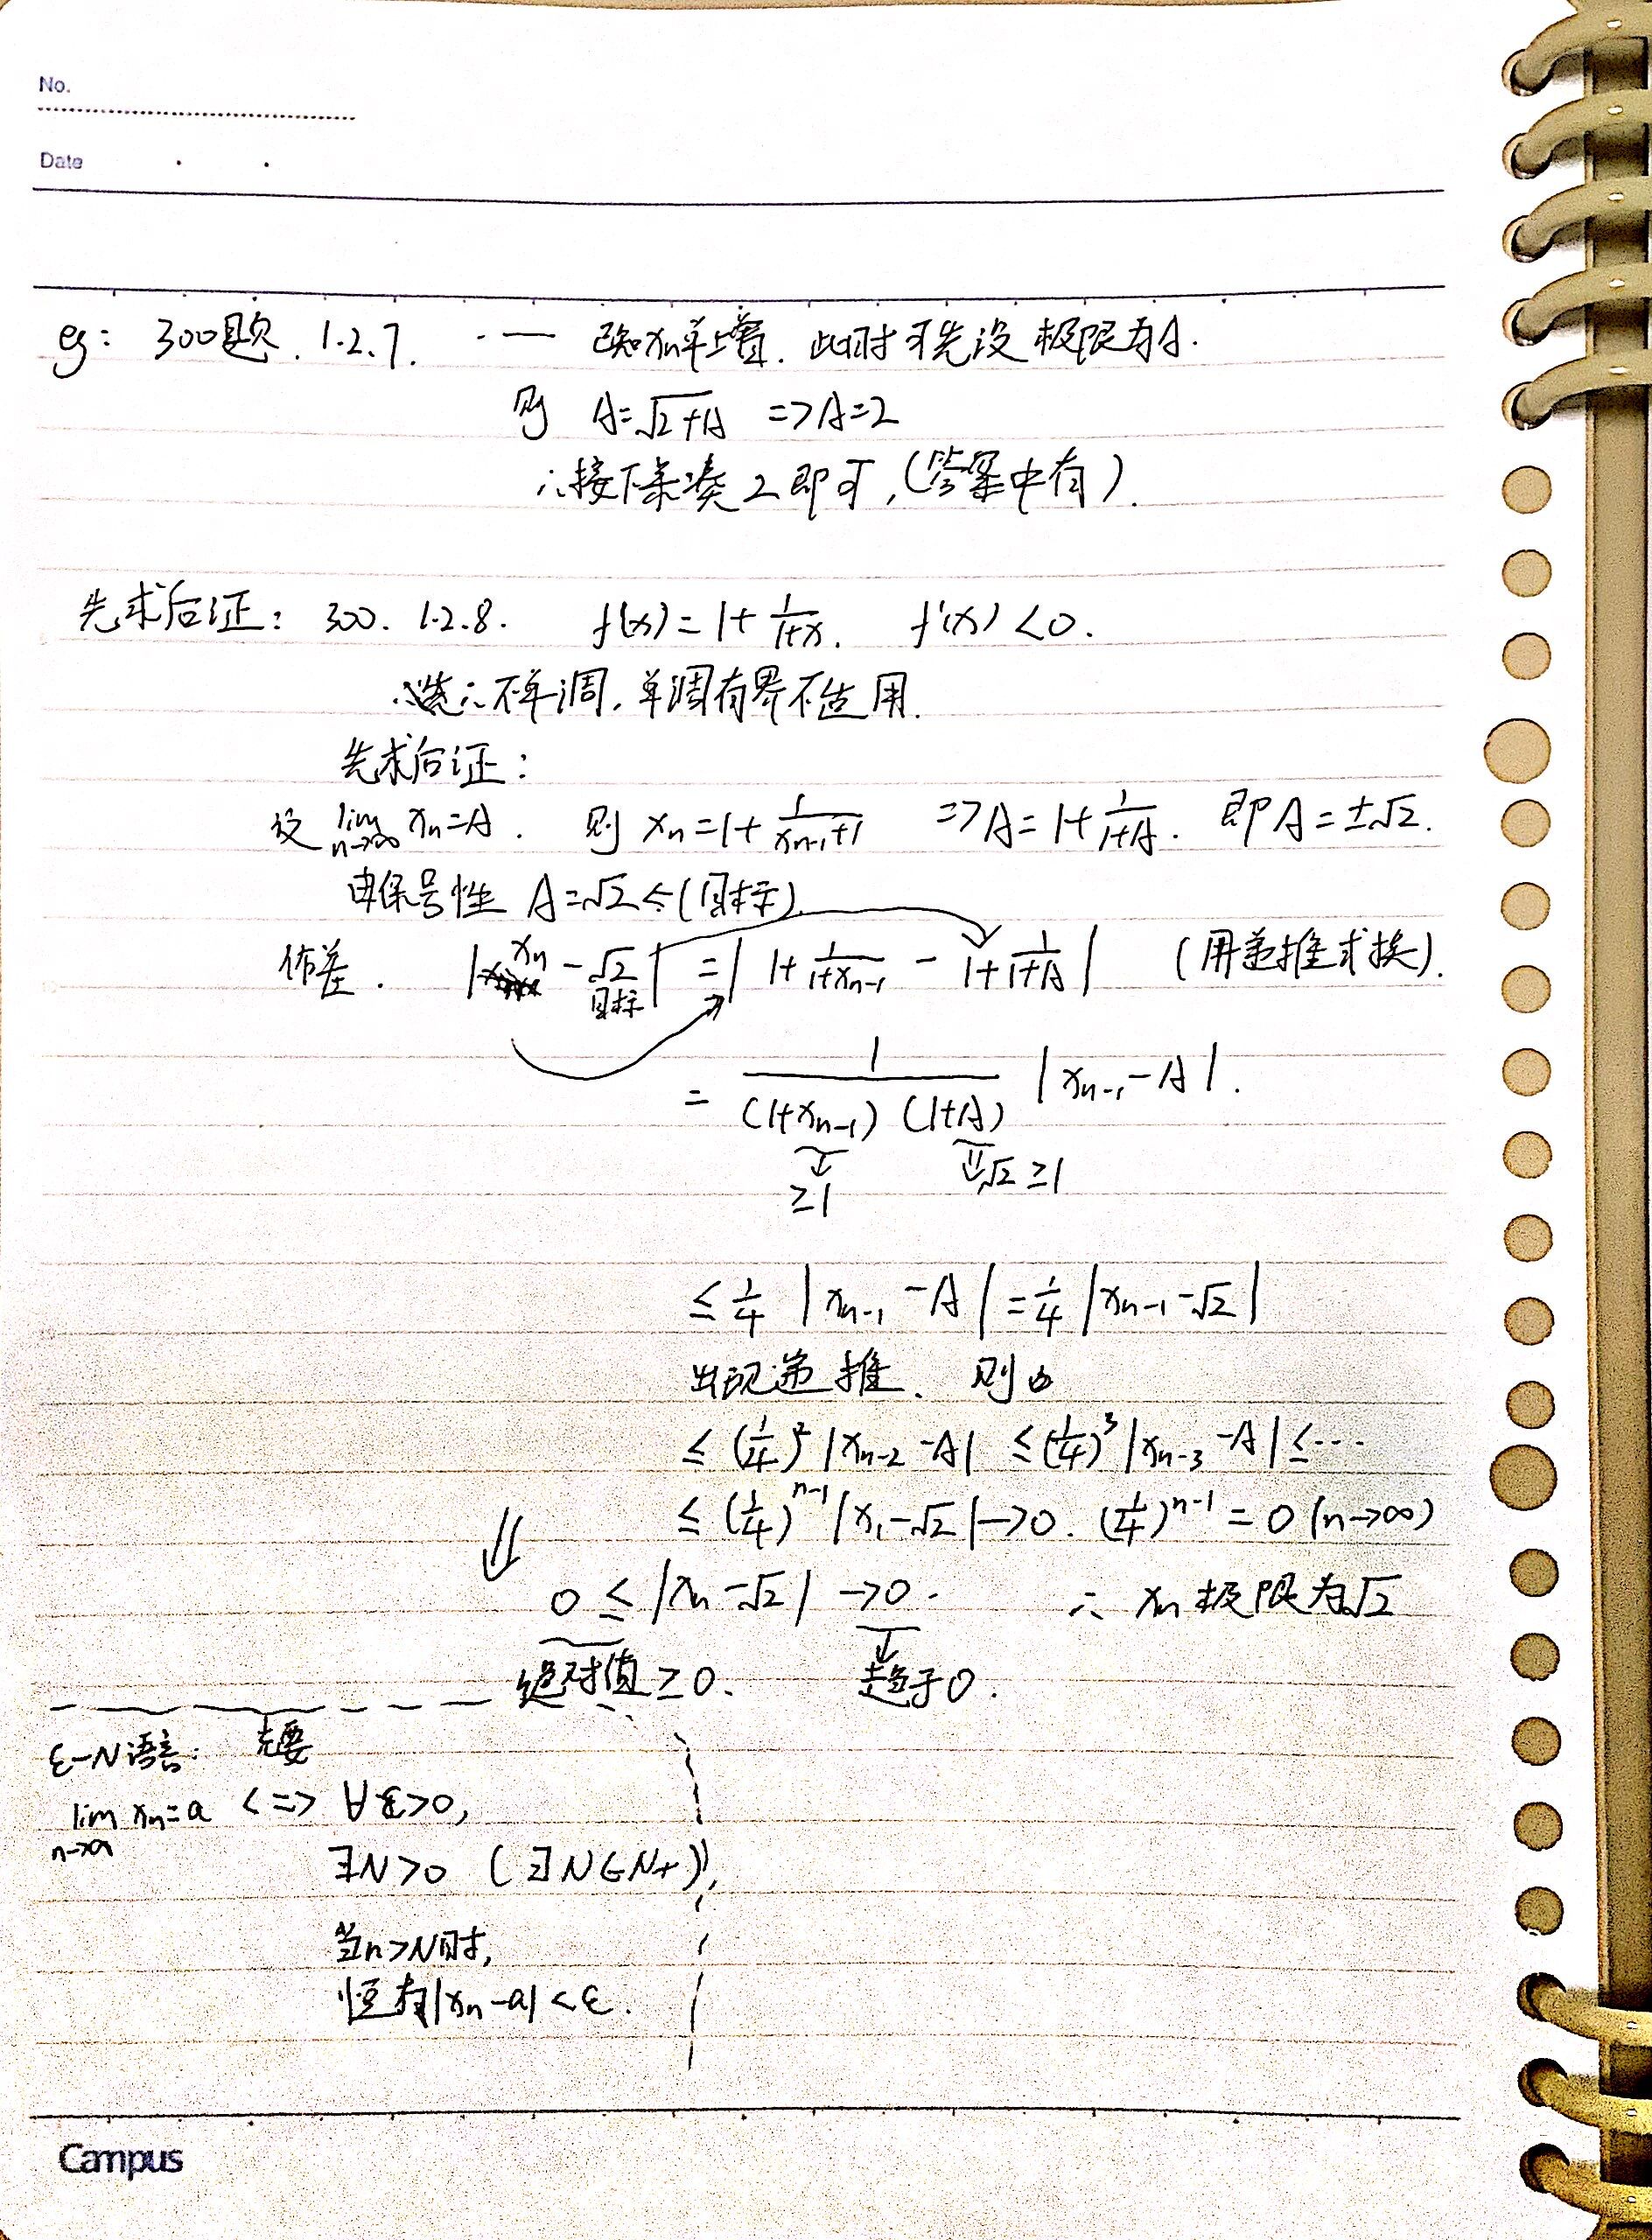 No.
Date
eg: 300题. 1.2.7. ·— 已知xn单增. 此时可先设极限为A.
则 A=√(2+A) => A=2
∴接下来凑2即可,(答案中有).
先求后证: 300. 1.2.8. f(x)=1+1/(1+x). f'(x)<0.
∴ 不单调. 单调有界不适用.
先求后证:
设 lim n→∞ xn=A. 则 xn=1+1/(xn-1+1) => A=1+1/(1+A). 即A=±√2.
由保号性 A=√2 ←(目标)
作差. |xn-√2| = |1+1/(1+xn-1) - 1+1/(1+A)| (用递推式换).
目标
= 1/((1+xn-1)(1+A)) |xn-1-A|.
≥1 √2≥1
≤ 1/4 |xn-1-A| = 1/4 |xn-1-√2|
出现递推. 则
≤ (1/4)² |xn-2-A| ≤ (1/4)³ |xn-3-A| ≤ ···
≤ (1/4)ⁿ⁻¹ |x1-√2| →0. (1/4)ⁿ⁻¹ = 0 (n→∞)
⇓ 0 ≤ |xn-√2| →0. ∴ xn极限为√2
绝对值≥0. 趋于0.
ε-N语言: 充要
lim n→∞ xn=a <=> ∀ε>0,
∃N>0 (∃N∈N+),
当n>N时,
恒有|xn-a|<ε.
Campus